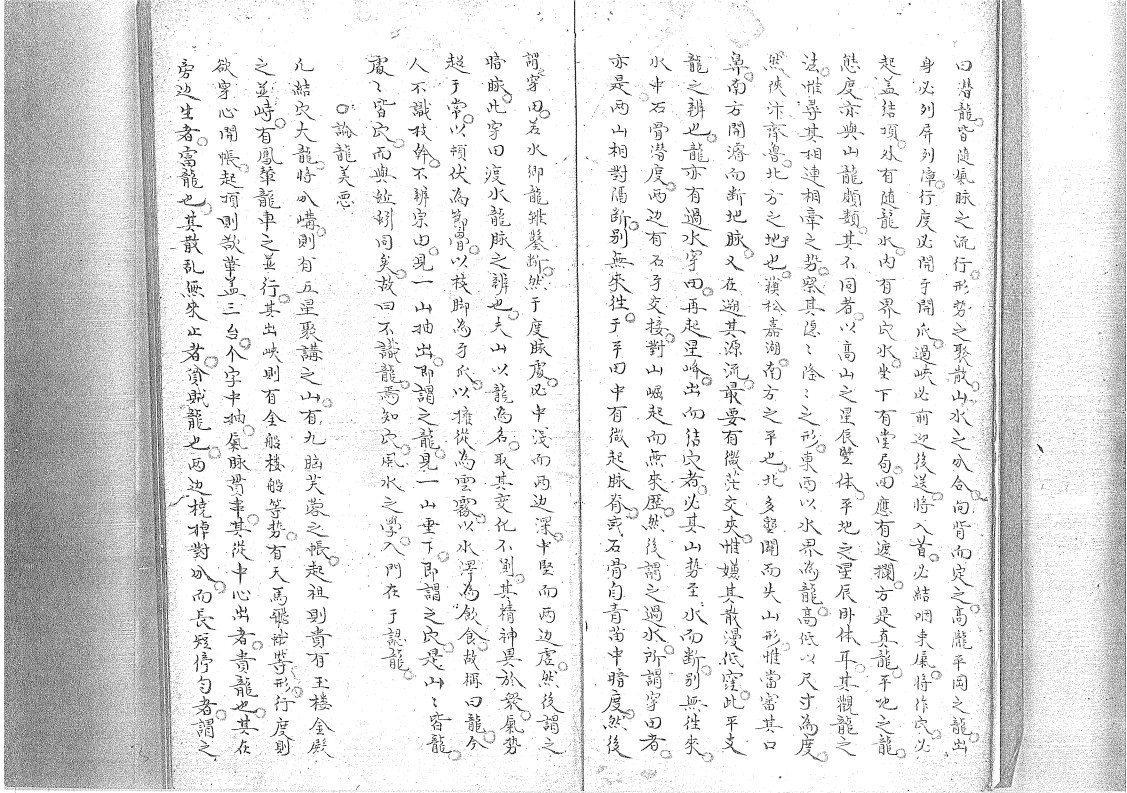 曰潛龍皆隨氣脉之流行形勢之聚散山水之分合向背而定之高壠平岡之龍出
身必列屏列障行度必開手開爪過峽必前迎後送將入首必結咽束氣將作穴必
起盖結項外有随龍水內有界穴水坐下有堂局四應有遮攔方是真龍平地之龍
態度亦與山龍頗類其不同者以高山之星辰竪体平地之星辰卧体耳其觀龍之
法惟尋其相連相牽之势察其隱〻隆〻之形東西以水界為龍高低以尺寸為度
然陝汴齊魯北方之地也蘇松嘉湖南方之平也北多墾闢而失山形惟當審其口
鼻南方開濬而断地脉又在遡其源流最要有微茫交夾惟嫌其散漫低窪此平支
龍之辨也龍亦有過水穿田再起星峰出而结穴者必其山势至水而断别無徃來
水中石骨潜度两边有石牙交接對山崛起而無來歴然後謂之過水所謂穿田者
亦是两山相對隔断别無來徃于平田中有微起脉脊或石骨自青苗中暗度然後
謂穿田若水鄉龍雖鑿断然于度脉處必中淺而两边深中堅而两边虚然後謂之
暗脉此穿田渡水龍脉之辨也夫山以龍為名取其变化不測其精神異於衆氣势
超于常以頓伏為節骨以枝脚為牙爪以擁從為雲霧以水澤為飲食故稱曰龍今
人不識枝幹不辨宗由見一山抽出即謂之龍見一山垂下即謂之穴是山〻皆龍
處〻皆穴而與蚯蚓同矣故曰不識龍焉知穴風水之學入門在于認龍
論龍美惡
凡結穴大龍將分嶂則有五星聚講之山有九腦芙蓉之帳起祖則貴有玉楼金殿
之並峙有鳳輦龍車之並行其出峽則有全船楼船等势有天馬飛 等形行度則
欲穿心開帳起項則欲華盖三台个字中抽氣脉貫串其從中心出者貴龍也其在
旁边生者富龍也其散乱無來止者貧賎龍也两边橈棹對分而長短停匀者謂之